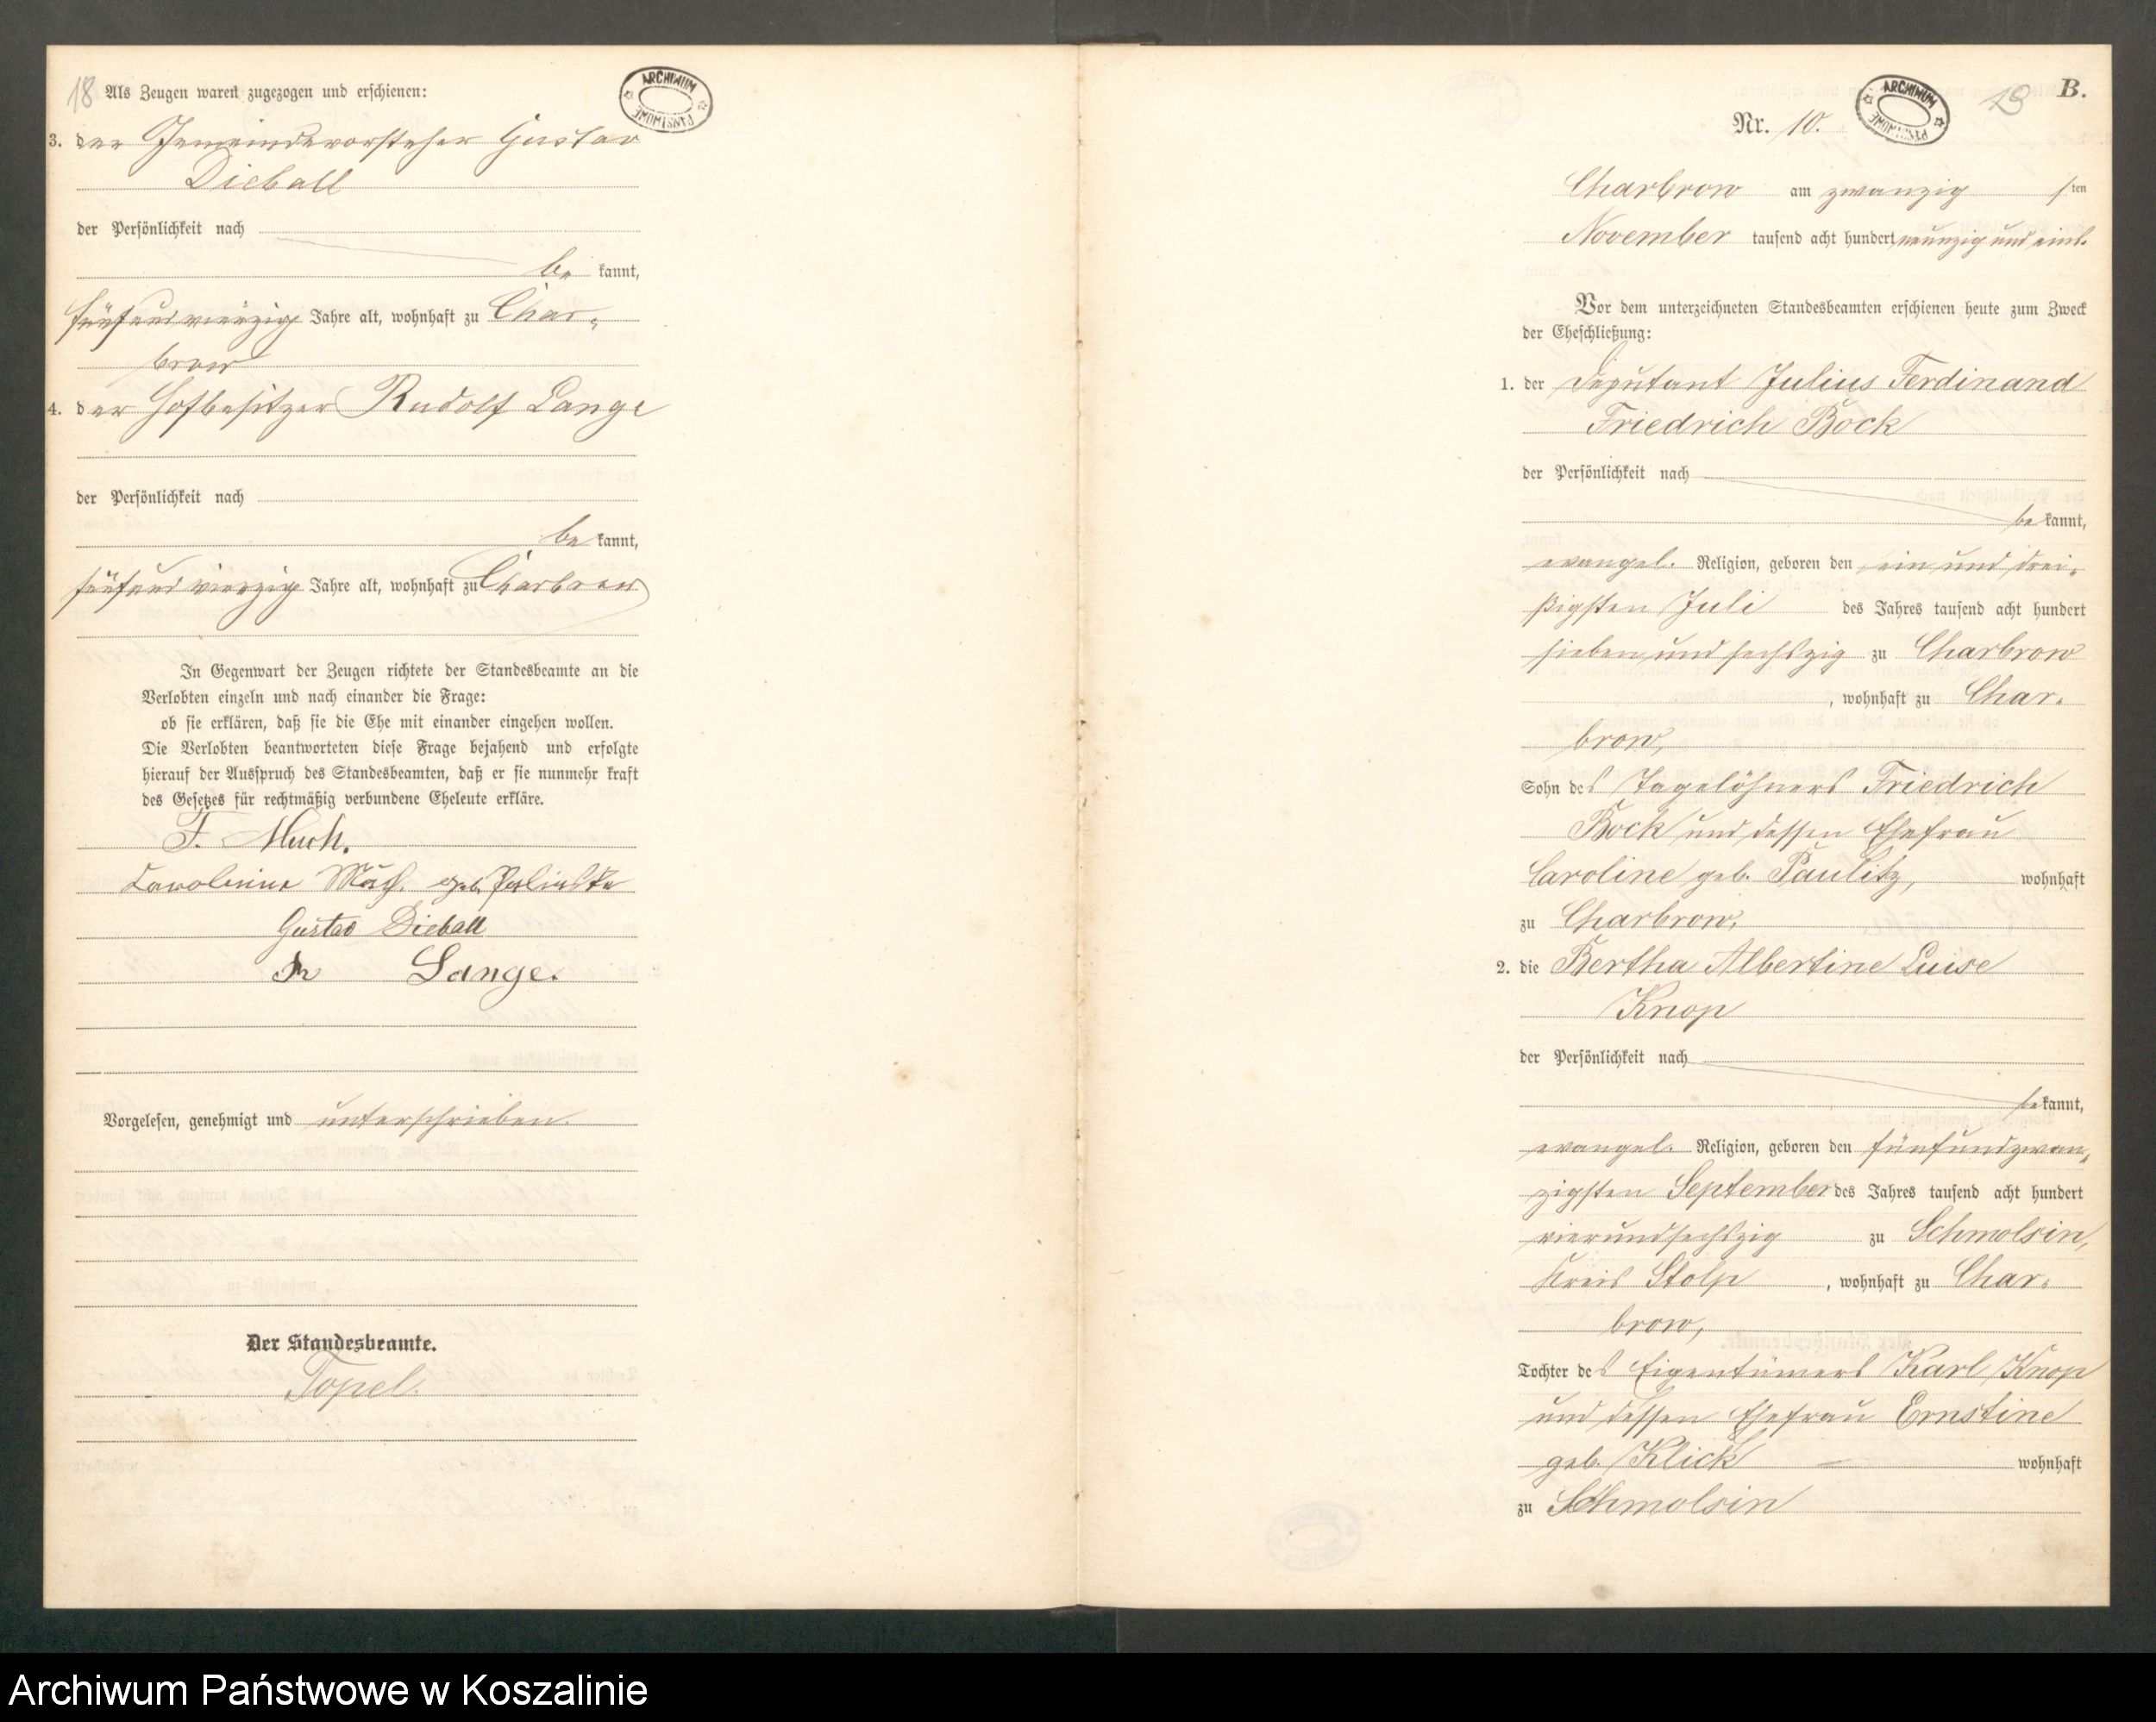 18 Als Zeugen waren zugezogen und erschienen:
ARCHIWUM PAŃSTWOWE
3. der Gemeindevorsteher Gustav
Dieball
der Persönlichkeit nach
be kannt,
fünfundvierzig Jahre alt, wohnhaft zu Char-
brow
4. der Hofbesitzer Rudolf Lange
der Persönlichkeit nach
be kannt,
fünfundvierzig Jahre alt, wohnhaft zu Charbrow
In Gegenwart der Zeugen richtete der Standesbeamte an die
Verlobten einzeln und nach einander die Frage:
ob sie erklären, daß sie die Ehe mit einander eingehen wollen.
Die Verlobten beantworteten diese Frage bejahend und erfolgte
hierauf der Ausspruch des Standesbeamten, daß er sie nunmehr kraft
des Gesetzes für rechtmäßig verbundene Eheleute erkläre.
F. Much.
geb.
Gustav Dieball
R Lange.
Vorgelesen, genehmigt und unterschrieben.
Der Standesbeamte.
Topel.
B.
19
ARCHIWUM PAŃSTWOWE
Nr. 10.
Charbrow am zwanzig sten
November tausend acht hundert neunzig und eins.
Vor dem unterzeichneten Standesbeamten erschienen heute zum Zweck
der Eheschließung:
1. der Deputant Julius Ferdinand
Friedrich Bock
der Persönlichkeit nach
be kannt,
evangel. Religion, geboren den ein und drei-
ßigsten Juli des Jahres tausend acht hundert
sieben und sechszig zu Charbrow
, wohnhaft zu Char-
brow,
Sohn des Tagelöhners Friedrich
Bock und dessen Ehefrau
Caroline geb. Paulitz, wohnhaft
zu Charbrow,
2. die Bertha Albertine Luise
Knop
der Persönlichkeit nach
be kannt,
evangel. Religion, geboren den fünfundzwan-
zigsten September des Jahres tausend acht hundert
vierundsechszig zu Schmolsin,
Kreis Stolp, wohnhaft zu Char-
brow,
Tochter des Eigentümers Karl Knop
und dessen Ehefrau Ernstine
geb. Klick wohnhaft
zu Schmolsin
Archiwum Państwowe w Koszalinie